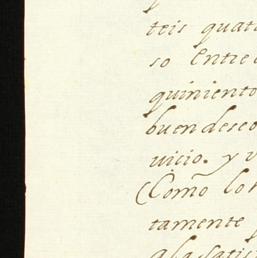 y
teis quat
so Entre
quiniento
buen deseo
uicio. y v
(Como lo h
tamente
a la satis